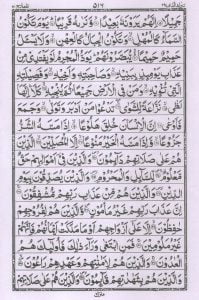 ۵۱۶
جَمِيْلًا اِنَّهُمْ يَرَوْنَهٗ بَعِيْدًا وَّنَرٰىهُ قَرِيْبًا يَوْمَ تَكُوْنُ
السَّمَآءُ كَالْمُهْلِ وَتَكُوْنُ الْجِبَالُ كَالْعِهْنِ وَلَا يَسْئَلُ
حَمِيْمٌ حَمِيْمًا يُّبَصَّرُوْنَهُمْ يَوَدُّ الْمُجْرِمُ لَوْ يَفْتَدِيْ مِنْ
عَذَابِ يَوْمِئِذٍۭ بِبَنِيْهِ وَصَاحِبَتِهٖ وَاَخِيْهِ وَفَصِيْلَتِهِ
الَّتِيْ تُـْٔوِيْهِ وَمَنْ فِي الْاَرْضِ جَمِيْعًا ثُمَّ يُنْجِيْهِ كَلَّا اِنَّهَا
لَظٰى نَزَّاعَةً لِّلشَّوٰى تَدْعُوْا مَنْ اَدْبَرَ وَتَوَلّٰى وَجَمَعَ
فَاَوْعٰى اِنَّ الْاِنْسَانَ خُلِقَ هَلُوْعًا اِذَا مَسَّهُ الشَّرُّ
جَزُوْعًا وَّاِذَا مَسَّهُ الْخَيْرُ مَنُوْعًا اِلَّا الْمُصَلِّيْنَ الَّذِيْنَ
هُمْ عَلٰى صَلَاتِهِمْ دَآئِمُوْنَ وَالَّذِيْنَ فِيْٓ اَمْوَالِهِمْ حَقٌّ
مَّعْلُوْمٌ لِّلسَّآئِلِ وَالْمَحْرُوْمِ وَالَّذِيْنَ يُصَدِّقُوْنَ بِيَوْمِ
الدِّيْنِ وَالَّذِيْنَ هُمْ مِّنْ عَذَابِ رَبِّهِمْ مُّشْفِقُوْنَ اِنَّ
عَذَابَ رَبِّهِمْ غَيْرُ مَاْمُوْنٍ وَالَّذِيْنَ هُمْ لِفُرُوْجِهِمْ
حٰفِظُوْنَ اِلَّا عَلٰٓى اَزْوَاجِهِمْ اَوْ مَا مَلَكَتْ اَيْمَانُهُمْ فَاِنَّهُمْ
غَيْرُ مَلُوْمِيْنَ فَمَنِ ابْتَغٰى وَرَآءَ ذٰلِكَ فَاُولٰٓئِكَ هُمُ
الْعٰدُوْنَ وَالَّذِيْنَ هُمْ لِاَمٰنٰتِهِمْ وَعَهْدِهِمْ رٰعُوْنَ
وَالَّذِيْنَ هُمْ بِشَهٰدٰتِهِمْ قَآئِمُوْنَ وَالَّذِيْنَ هُمْ عَلٰى صَلَاتِهِمْ